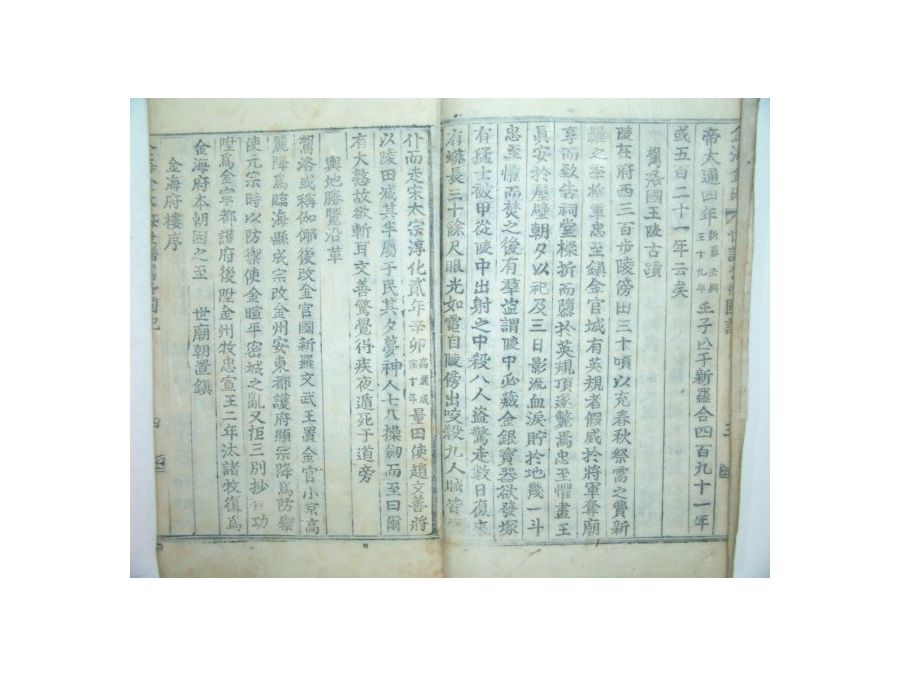 帝大通四年新羅法興王十九年壬子亡于新羅合四百九十一年
或五百二十一年云矣
駕洛國王陵古蹟
陵在府西三百步陵傍田三十頃以充春秋祭需之費新
羅之季將軍忠至鎮金官城有英規者假威於將軍奪廟
享而致告祠堂樑折而墮於英規頂遂斃焉忠至懼畫王
眞安於屋壁朝夕以祀及三日影流血淚貯於地幾一斗
忠至懼而焚之後有羣盜謂陵中必藏金銀寶器欲發塚
有猛士被甲從陵中出射之中殺八人盜驚走數日復來
有蟒長三十餘尺眼光如電自陵傍出咬殺九人賊皆
仆而走宋太宗淳化貳年辛卯高麗成宗十年量田使趙文善將
以陵田減其半屬于民其夕夢神人七八操劒而至曰爾
有大愆故欲斬耳文善驚覺得疾夜遁死于道旁
輿地勝覽沿革
駕洛或稱伽倻後改金官國新羅文武王置金官小京高
麗降爲臨海縣成宗改金州安東都護府顯宗降爲防禦
使元宗時以防禦使金晅平密城之亂又拒三別抄有功
陞爲金寧都護府後陞金州牧忠宣王二年汰諸牧復爲
金海府本朝因之至 世廟朝置鎮
金海府樓序
四
三